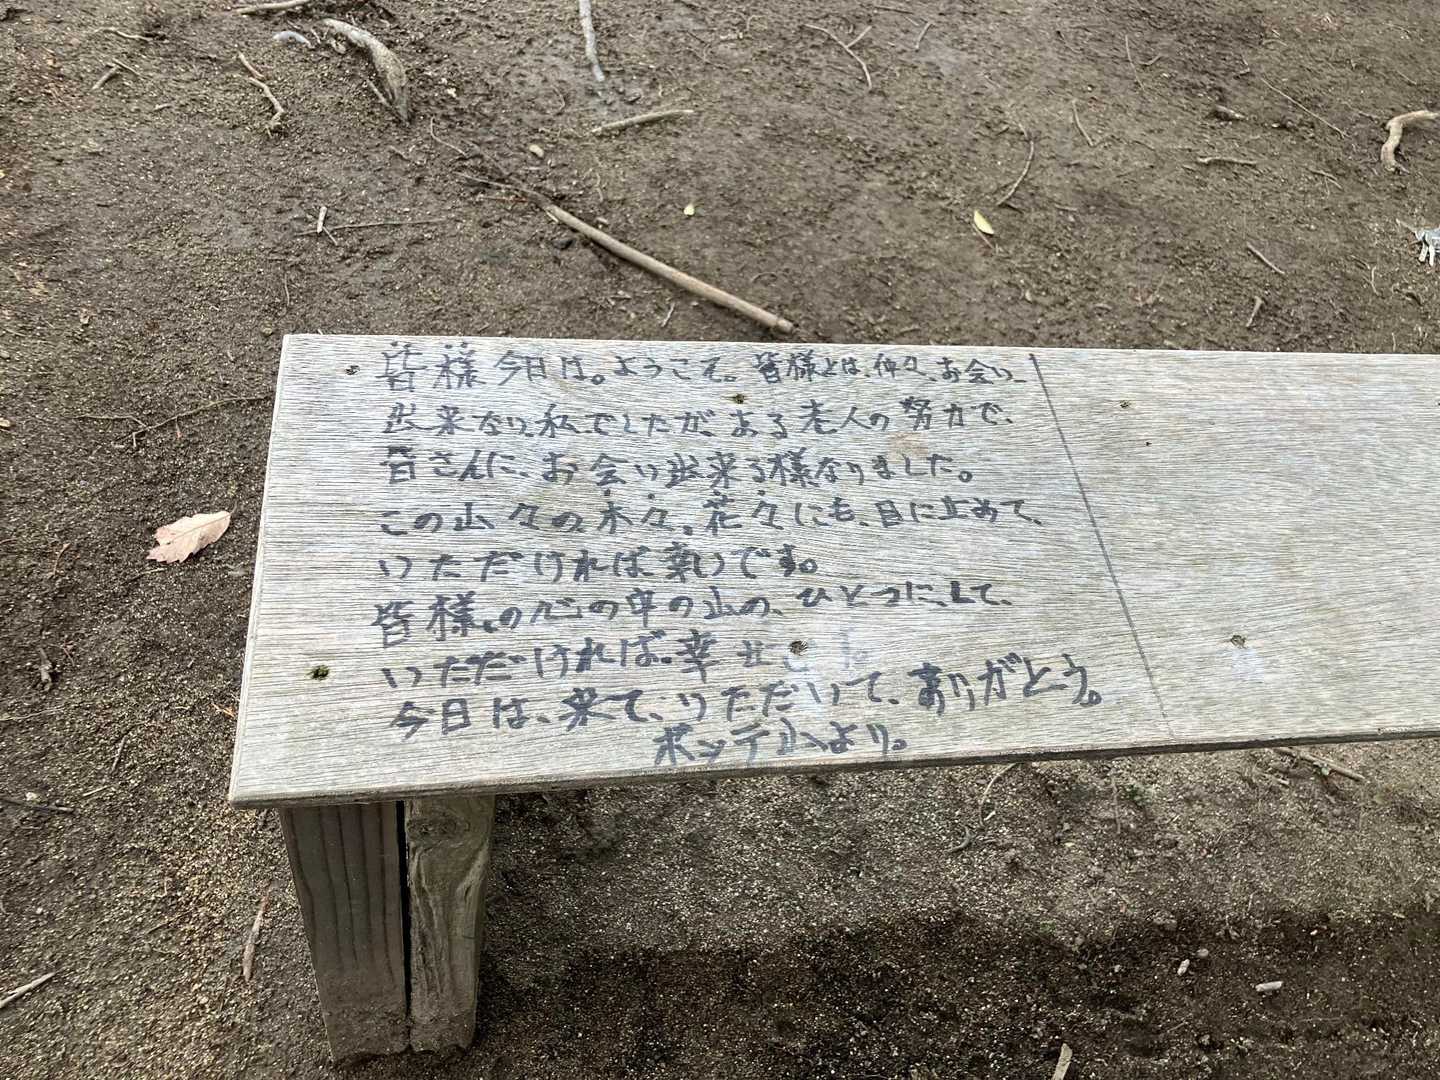 皆様今日は。ようこそ。皆様とは、仲々、お会い、
出来ない、私でしたが、ある老人の努力で、
皆さんに、お会い出来る様なりました。
この山々の、木々、花々にも、目に止めて、
いただければ幸いです。
皆様、の心の中の山の、ひとつに、して、
いただければ。幸せです。
今日は、来て、いただいて、ありがとう。
ポッテ山より。